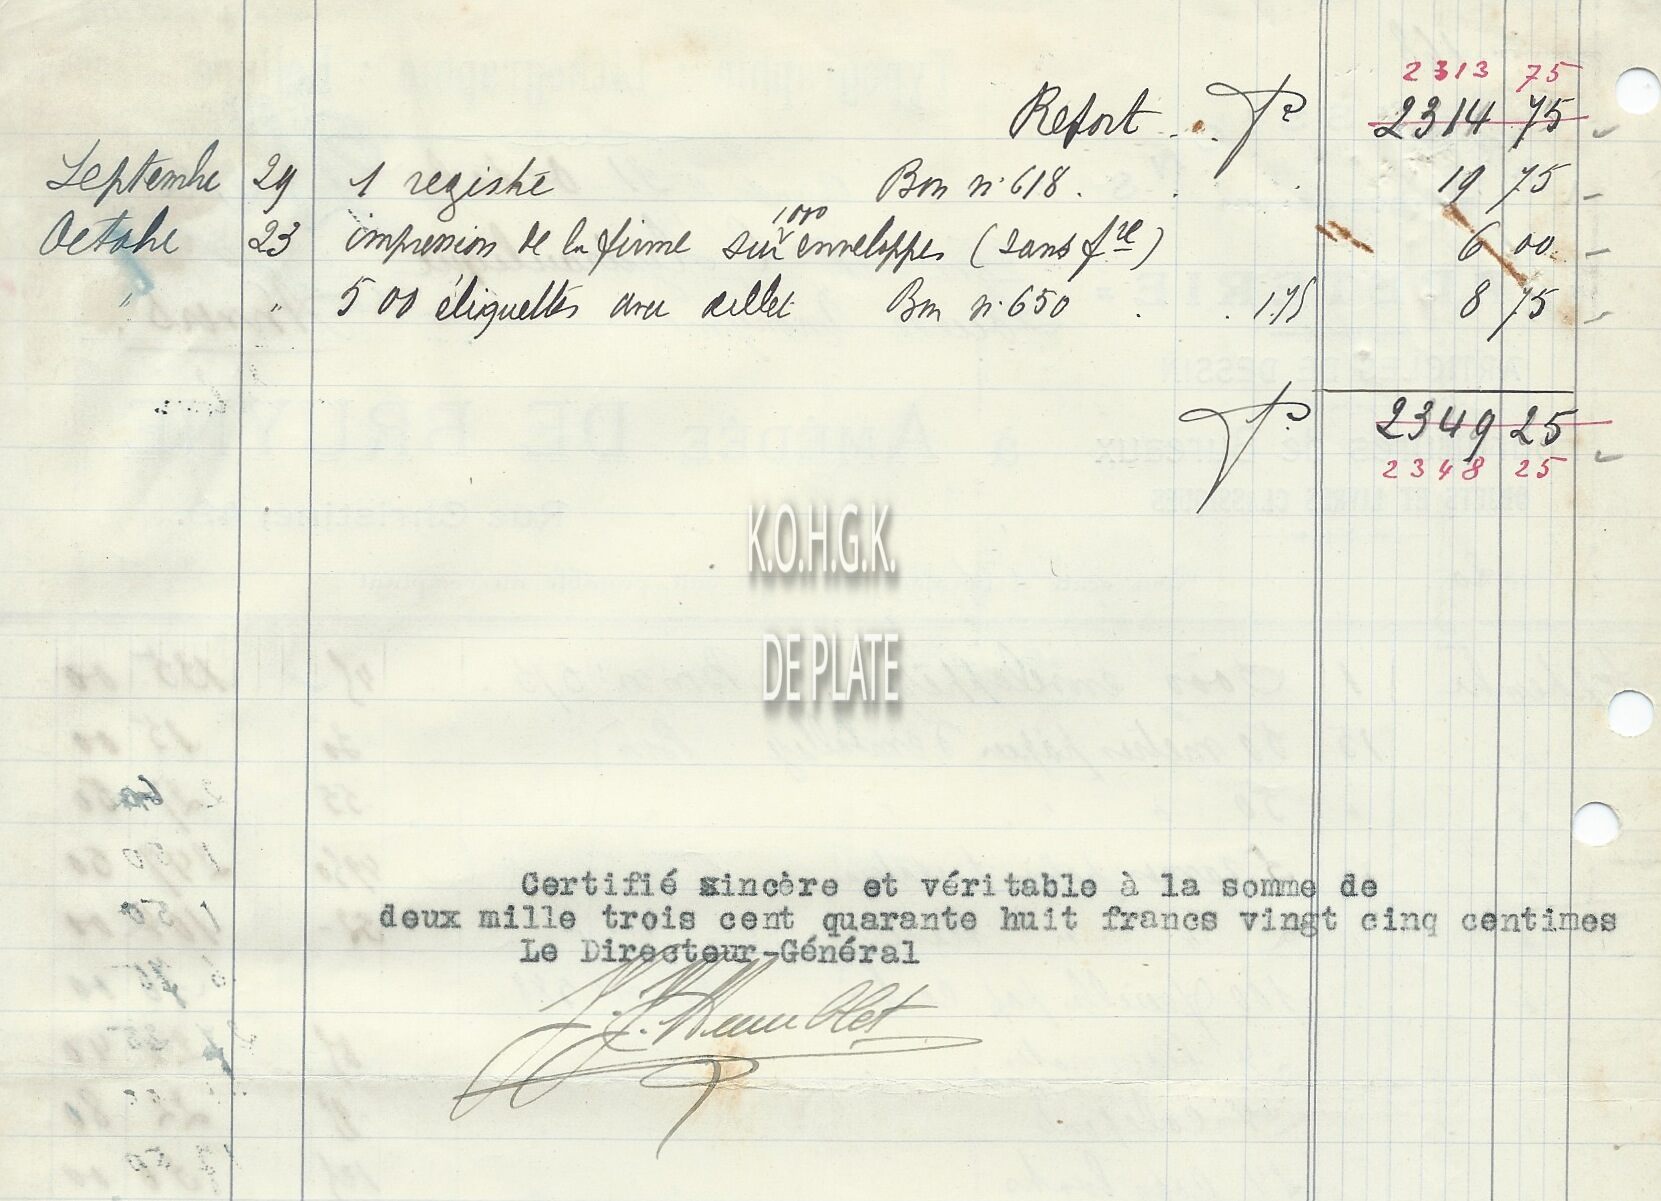 2313 75
Report . . . Frs 2314 75
Septembre 29 1 registre Bon n° 618 . . . 19 75
Octobre 23 impression de la firme sur 1000 enveloppes (sans fre) 6 00
" " 500 étiquettes avec œillet Bon n° 650 . . 1.75 8 75
Frs 2349 25
2348 25
K.O.H.G.K.
DE PLATE
Certifié sincère et véritable à la somme de
deux mille trois cent quarante huit francs vingt cinq centimes
Le Directeur-Général